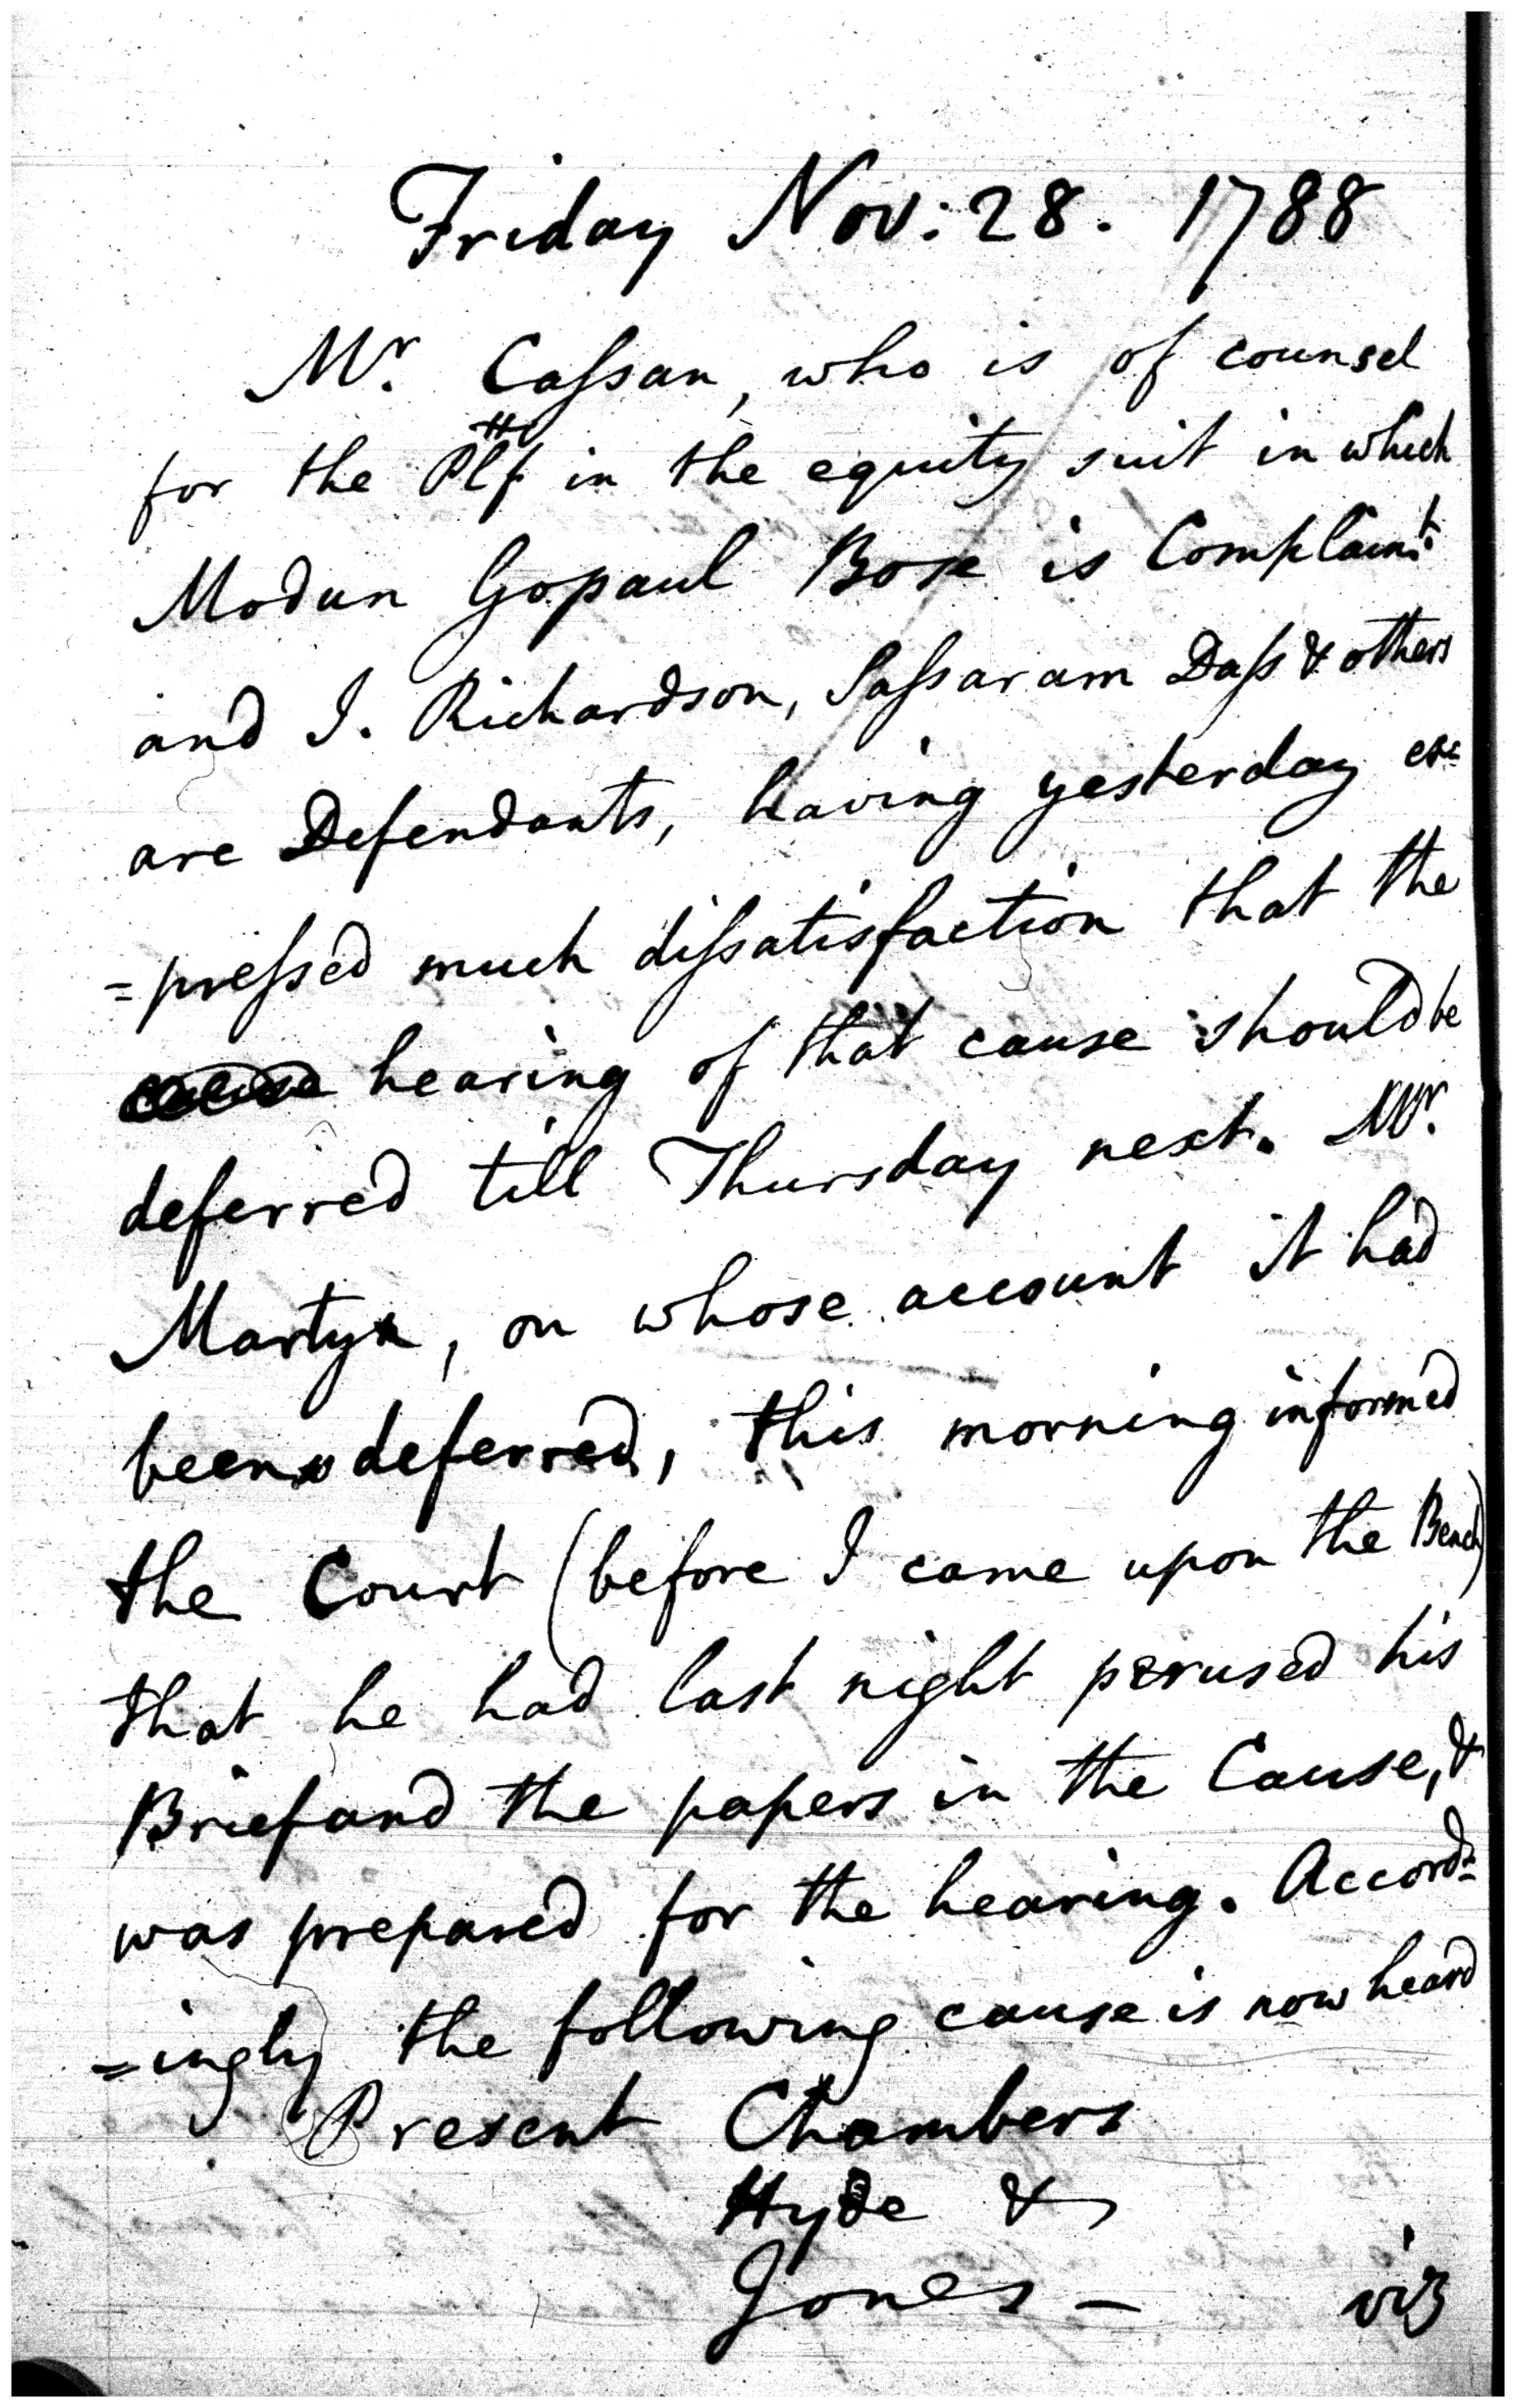 Friday Nov: 28. 1788
Mr. Caſsan, who is of counsel
for the Plf in the equity suit in which
Modun Gopaul Bose is Complaint.
and J. Richardson, Saſsaram Daſs & others
are Defendants, having yesterday ex=
=preſsed much diſsatisfaction that the
hearing of that cause should be
deferred till Thursday next. Mr.
Martyn, on whose account it had
been deferred, this morning informed
the Court (before I came upon the Bench)
that he had last night perused his
Brief and the papers in the Cause, &
was prepared for the hearing. Accord=
=ingly the following cause is now heard
Present Chambers
Hyde &
Jones —
viz